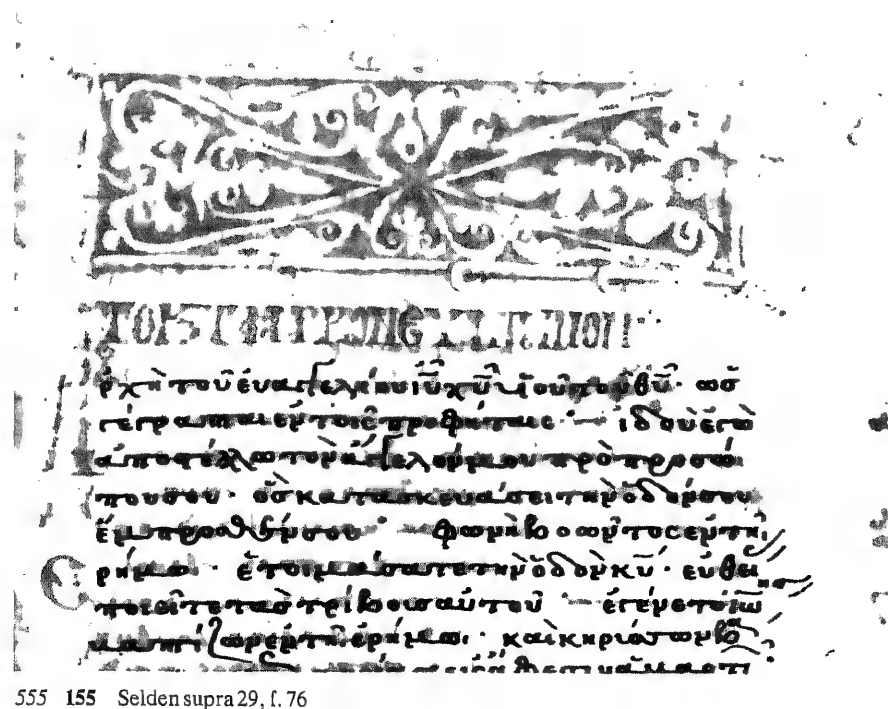 ΤΟ ΚΑΤΑ ΜΑΡΚΟΝ ΕΥΑΓΓΕΛΙΟΝ
ρχὴ τοῦ εὐαγγελίου ιῦ χῦ υἱοῦ τοῦ θῦ· ὡσ
γέγραπται ἐν τοῖς προφήταις·— ἰδοὺ ἐγὼ
ἀποστέλλω τὸν ἄγγελόν μου πρὸ προσώ
που σου· ὃσ κατασκευάσει τὴν ὁδόν σου
ἔμπροσθέν σου·— φωνὴ βοῶντος ἐν τῆ ἐ
ρήμω· ἑτοιμάσατε τὴν ὁδὸν κῦ· εὐθεί
ποιεῖτε τὰσ τρίβουσ αὐτοῦ·— ἐγένετο ἰω
βαπτίζων ἐν τῆ ἐρήμω· καὶ κηρύσσων β
555 155 Selden supra 29, f. 76